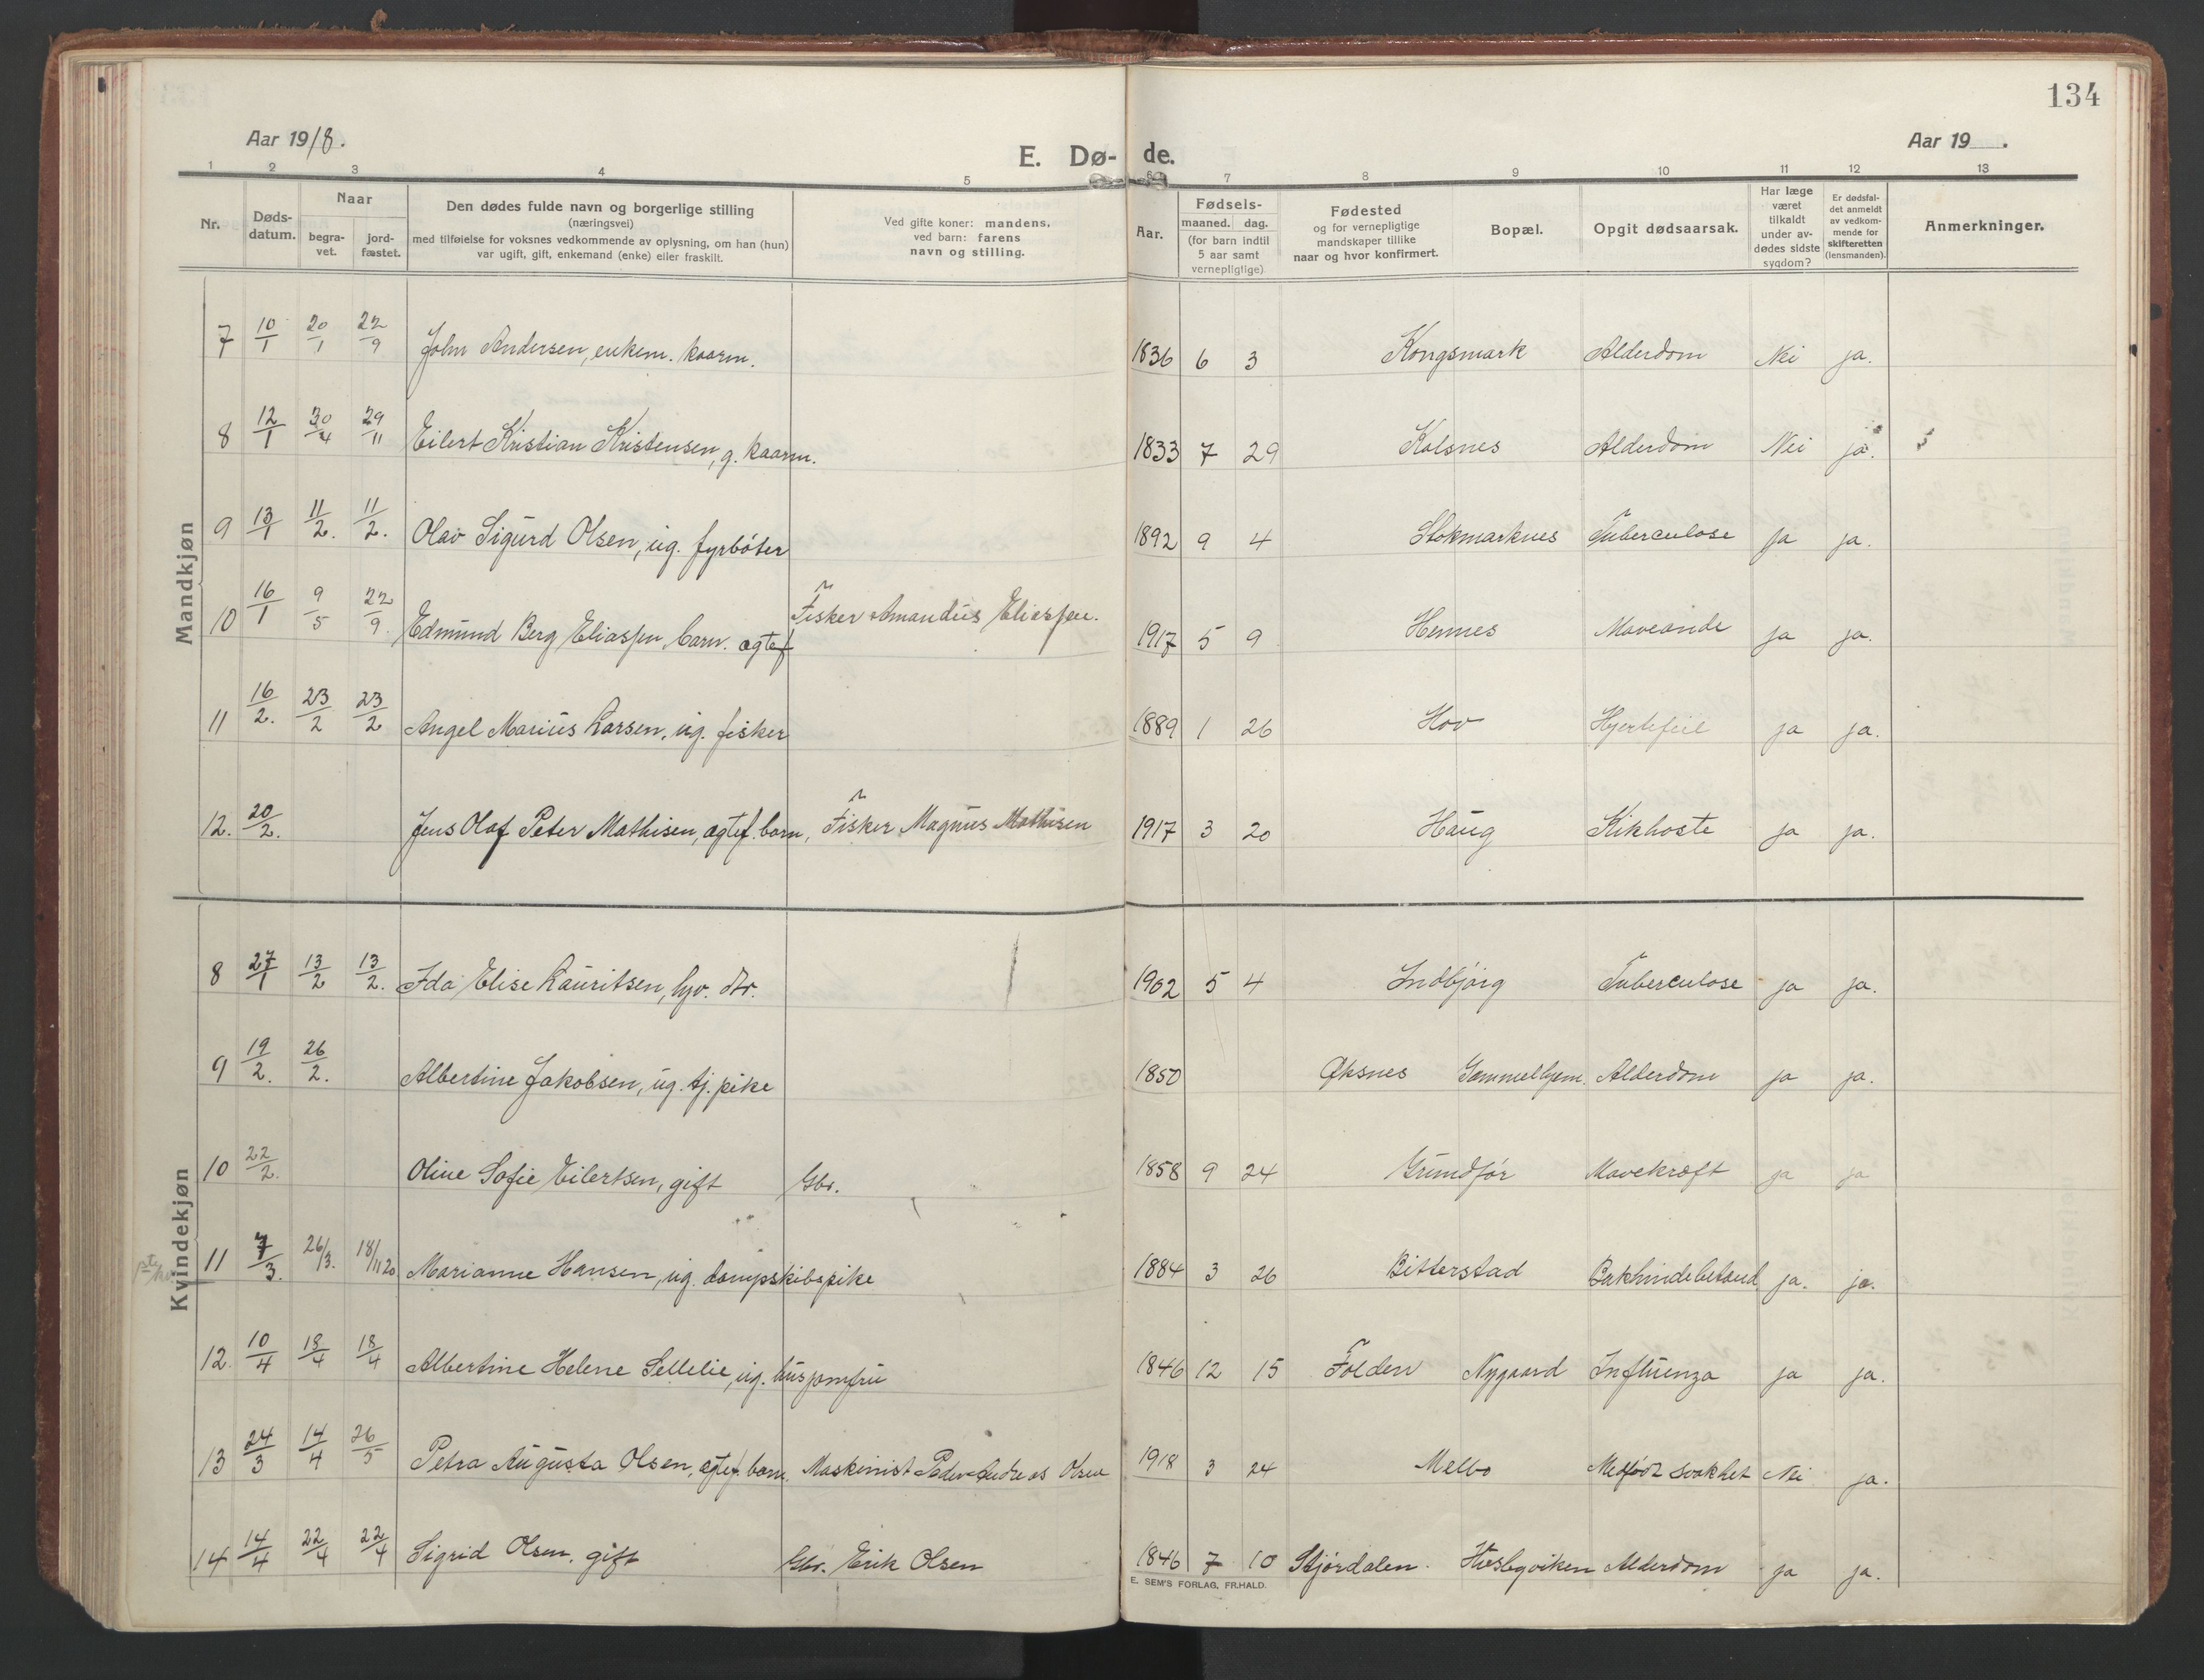 134
Aar 1918.
E. Dø- de.
Aar 19 .
1 2 3 4 5 6 7 8 9 10 11 12 13
Nr.
Døds-
datum.
Naar
begra-
vet.
jord-
fæstet.
Den dødes fulde navn og borgerlige stilling
(næringsvei)
med tilføielse for voksnes vedkommende av oplysning, om han (hun)
var ugift, gift, enkemand (enke) eller fraskilt.
Ved gifte koner: mandens,
ved barn: farens
navn og stilling.
Aar.
Fødsels-
maaned. dag.
(for barn indtil
5 aar samt
vernepligtige)
Fødested
og for vernepligtige
mandskaper tillike
naar og hvor konfirmert.
Bopæl.
Opgit dødsaarsak.
Har læge
været
tilkaldt
under av-
dødes sidste
sygdom?
Er dødsfal-
det anmeldt
av vedkom-
mende for
skifteretten
(lensmanden).
Anmerkninger.
Mandkjøn
7 10/1 20/1 22/9 John Andersen, enkem. kaarm. 1836 6 3 Kongsmark Alderdom Nei ja.
8 12/1 30/4 29/11 Eilert Kristian Kristensen, g. kaarm. 1833 7 29 Kalsnes Alderdom Nei ja.
9 13/1 11/2. 11/2. Olav Sigurd Olsen, ug. fyrbøter 1892 9 4 Stokmarknes Tuberculose ja ja.
10 16/1 9/5 22/9. Edmund Berg Eliassen, barn. ægtef Fisker Amandus Eliassen. 1917 5 9 Hennes Maveonde ja ja.
11 16/2. 23/2 23/2 Angel Marius Larsen, ug. fisker 1889 1 26 Hov Hjertefeil ja ja.
12. 20/2. Jens Olaf Peter Mathisen, ægtef. barn, Fisker Magnus Mathisen 1917 3 20 Haug Kikhoste ja ja.
Kvindekjøn
8 27/1 13/2 13/2. Ida Elise Lauritsen, hjv. dtr. 1902 5 4 Indbjørg Tuberculose ja ja.
9 19/2. 26/2. Albertine Jakobsen, ug. tj. pike 1850 Øksnes Gammelhjem. Alderdom ja ja.
10 22/2. Oline Sofie Eilertsen, gift Gbr. 1858 9 24 Grundfør Mavekræft ja ja
11 7/3. 26/3. 18/11 20 Marianne Hansen, ug. dampskibspike 1884 3 26 Bitterstad Bukhindebetænd. ja. ja.
12. 10/4 18/4 18/4 Albertine Helene Sellelie, ug. husjomfru 1846 12 15 Folden Nygaard Influenza ja ja.
13 24/3 14/4 26/5 Petra Augusta Olsen, ægtef. barn. Maskinist Peder Andreas Olsen 1918 3 24 Melbo Medfødt svakhet Nei ja.
14 14/4 22/4 22/4 Sigrid Olsen, gift Gbr. Erik Olsen 1846 7 10 Stjørdalen. Husbyviken Alderdom ja ja.
E. SEM'S FORLAG, FR.HALD.